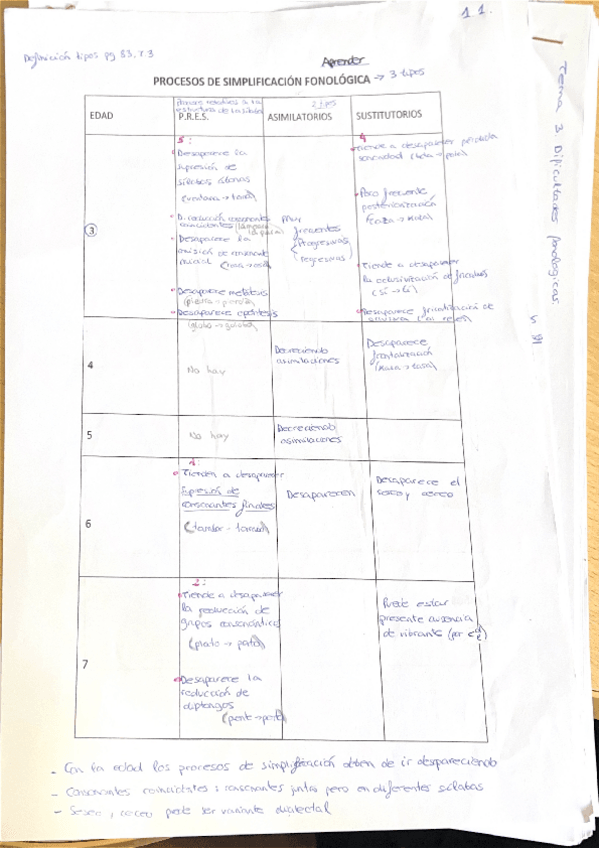 11.
Definición tipos pg 83, 7.3
Aprender
PROCESOS DE SIMPLIFICACIÓN FONOLÓGICA → 3 tipos
Tema 3. Dificultades fonologicas.
EDAD
Procesos relativos a la
estructura de la sílaba
P.R.E.S.
2 tipos
ASIMILATORIOS
SUSTITUTORIOS
3
5:
Desaparece la
supresión de
sílabas átonas
(ventana → tana)
D. reducción consonantes
coincidentes
Desaparece la
omisión de consonante
inicial
Desaparece metátesis
Desaparece epéntesis
(globo → gulobo)
Muy
frecuentes
Progresivas
regresivas
4
Tiende a desaparecer pérdida
sonoridad
Poco frecuente
posteriorización
Tiende a desaparecer
la oclusivización de fricativas
(sí → ti)
Desaparece fricatización de
4
No hay
Decreciendo
asimilaciones
Desaparece
frontalización
(kasa → tasa)
5
No hay
Decreciendo
asimilaciones
6
1:
Tienden a desaparecer
supresión de
consonantes finales
(tambor -
Desaparecen
Desaparece el
seseo y ceceo
7
2:
Tiende a desaparecer
la producción de
grupos consonánticos
(plato → pato)
Desaparece la
reducción de
diptongos
Puede estar
presente ausencia
de vibrante (por
- Con la edad los procesos de simplificación deben de ir despareciendo
- Consonantes coincidentes: consonantes juntas pero en diferentes sílabas
- Seseo, ceceo puede ser variante dialectal